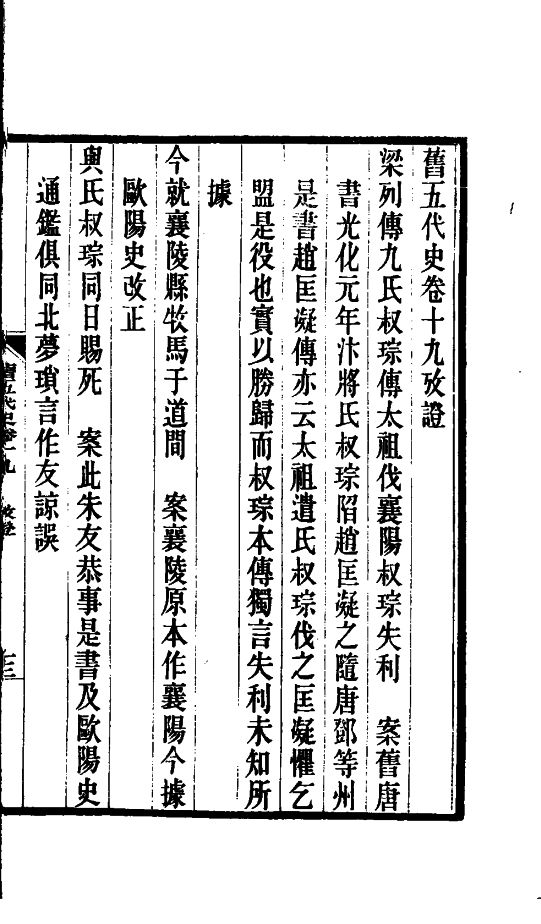 舊五代史卷十九攷證
梁列傳九氏叔琮傳太祖伐襄陽叔琮失利　案舊唐
書光化元年汴將氏叔琮陷趙匡凝之隨唐鄧等州
是書趙匡凝傳亦云太祖遣氏叔琮伐之匡凝懼乞
盟是役也實以勝歸而叔琮本傳獨言失利未知所
據
今就襄陵縣牧馬于道間　案襄陵原本作襄陽今據
歐陽史改正
與氏叔琮同日賜死　案此朱友恭事是書及歐陽史
通鑑俱同北夢瑣言作友諒誤
舊五代史卷十九　攷證